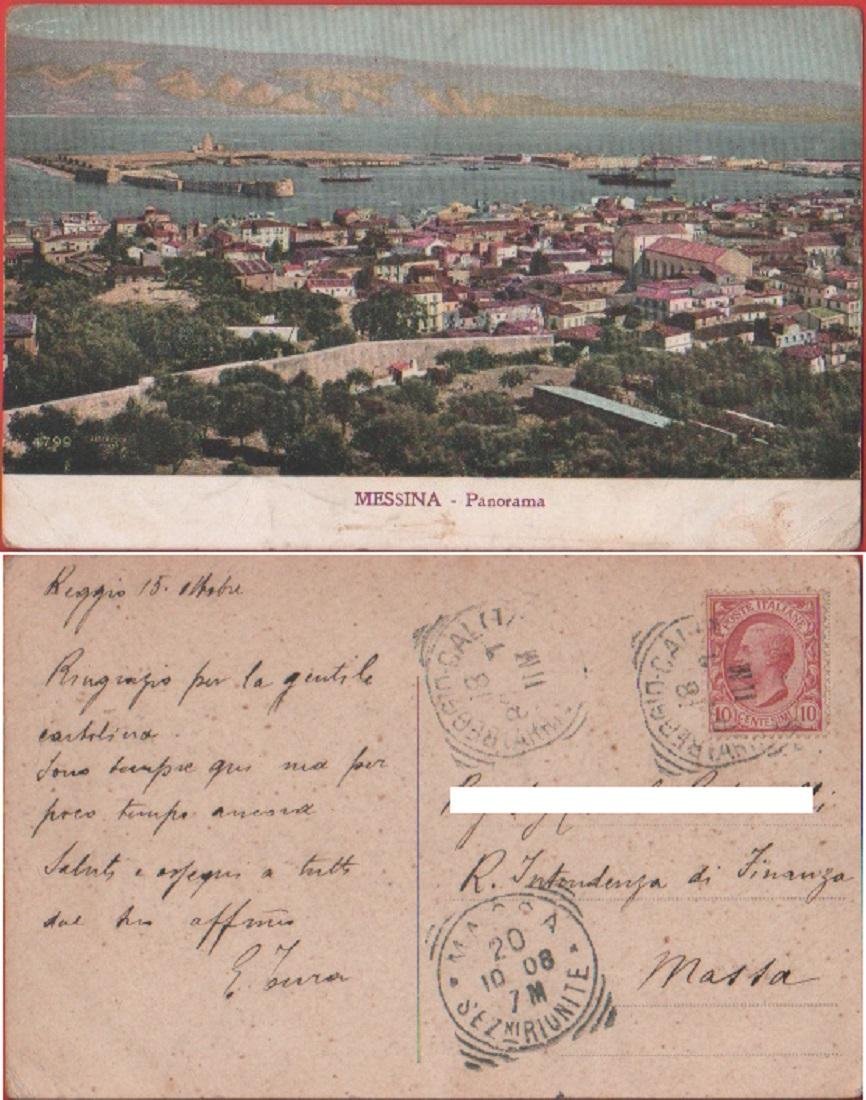 4799
MESSINA - Panorama
Reggio 15. Ottobre
Ringrazio per la gentile
cartolina.
Sono sempre qui ma per
poco tempo ancora
Saluti e ossequi a tutti
dal suo affmo
E.
POSTE ITALIANE
10 CENTESIMI 10
REGGIO CAL
18
REGGIO CAL
18
R. Intendenza di Finanza
Massa
MASSA
20
10 08
7 M
SEZNI RIUNITE